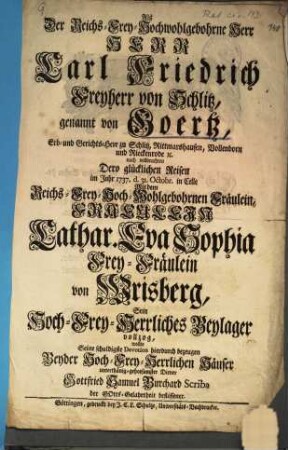 Als
Der Reichs-Frey-Hochwohlgebohrne Herr
HERR
Carl Friedrich
Freyherr von Schlitz,
genannt von Goertz,
Erb- und Gerichts-Herr zu Schlitz, Rittmarshausen, Vollenborn
und Rieckenrode ꝛc.
nach vollbrachten
Dero glücklichen Reisen
im Jahr 1737. d. 31. Octobr. in Celle
Mit dem
Reichs-Frey-Hoch-Wohlgebohrnen Fräulein,
FRÄULEIN
Cathar. Eva Sophia
Frey-Fräulein
von Wrisberg,
Sein
Hoch-Frey-Herrliches Beylager
vollzog,
wolte
Seine schuldigste Devotion hierdurch bezeugen
Beyder Hoch-Frey-Herrlichen Häuser
unterthänig-gehorsamster Diener
Gottfried Samuel Burchard Scriba
der GOttes-Gelahrtheit beflissener.
Göttingen, gedruckt bey J. C. L. Schultz, Universitäts-Buchdrucker.